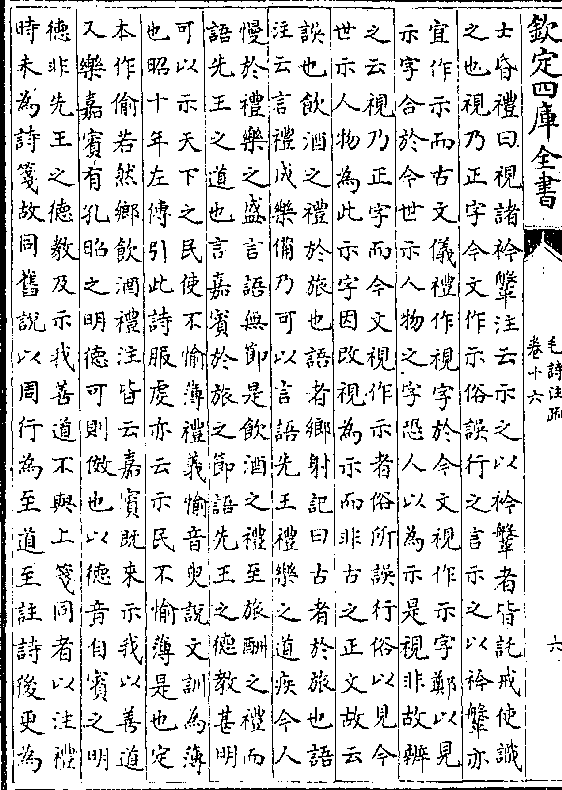 欽定四庫全書
毛詩注疏
卷十六
六
士昏禮曰視諸衿鞶注云示之以衿鞶者皆託戒使識
之也視乃正字今文作示俗誤行之言示之以衿鞶亦
宜作示而古文儀禮作視字於今文視作示字鄭以見
示字合於今世示人物之字恐人以為示是視非故辨
之云視乃正字而今文視作示者俗所誤行俗以見今
世示人物為此示字因改視為示而非古之正文故云
誤也飲酒之禮於旅也語者鄉射記曰古者於旅也語
注云言禮成樂備乃可以言語先王禮樂之道疾今人
慢於禮樂之盛言語無節是飲酒之禮至旅酬之禮而
語先王之道也言嘉賓於旅之節語先王之德教甚明
可以示天下之民使不愉薄禮義愉音臾說文訓為薄
也昭十年左傳引此詩服虔亦云示民不愉薄是也定
本作偷若然鄉飲酒禮注皆云嘉賓既來示我以善道
又樂嘉賓有孔昭之明德可則傚也以德音自賓之明
德非先王之德教及示我善道不與上箋同者以注禮
時未為詩箋故同舊說以周行為至道至註詩後更為